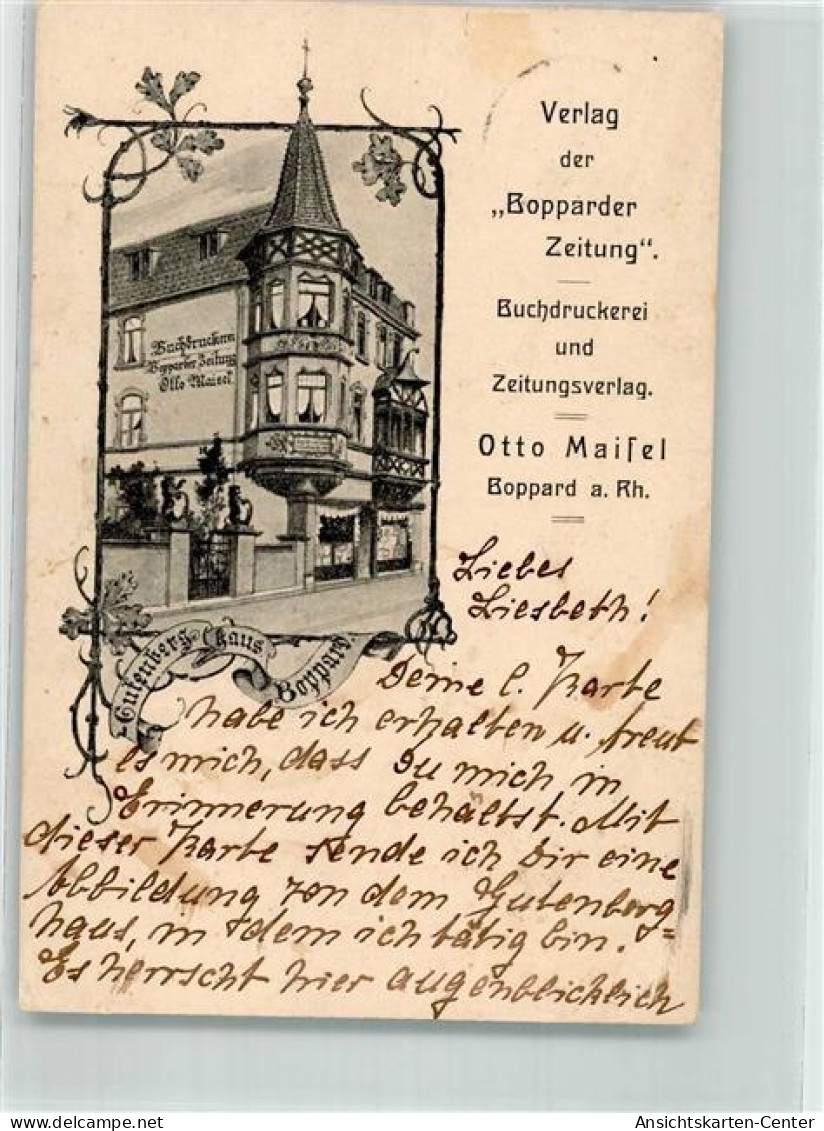 Verlag
der
„Bopparder
Zeitung“.
Buchdruckerei
und
Zeitungsverlag.
Otto Maiſel
Boppard a. Rh.
Buchdruckerei
Bopparder Zeitung
Otto Maisel
Gutenberg-haus
Boppard
Liebes
Liesbeth!
Deine l. Karte
habe ich erhalten u. freut
es mich, dass Du mich in
Erinnerung behältst. Mit
dieser Karte sende ich Dir eine
Abbildung von dem Gutenberg=
haus, in dem ich tätig bin.
Es herrscht hier augenblicklich
Ansichtskarten-Center